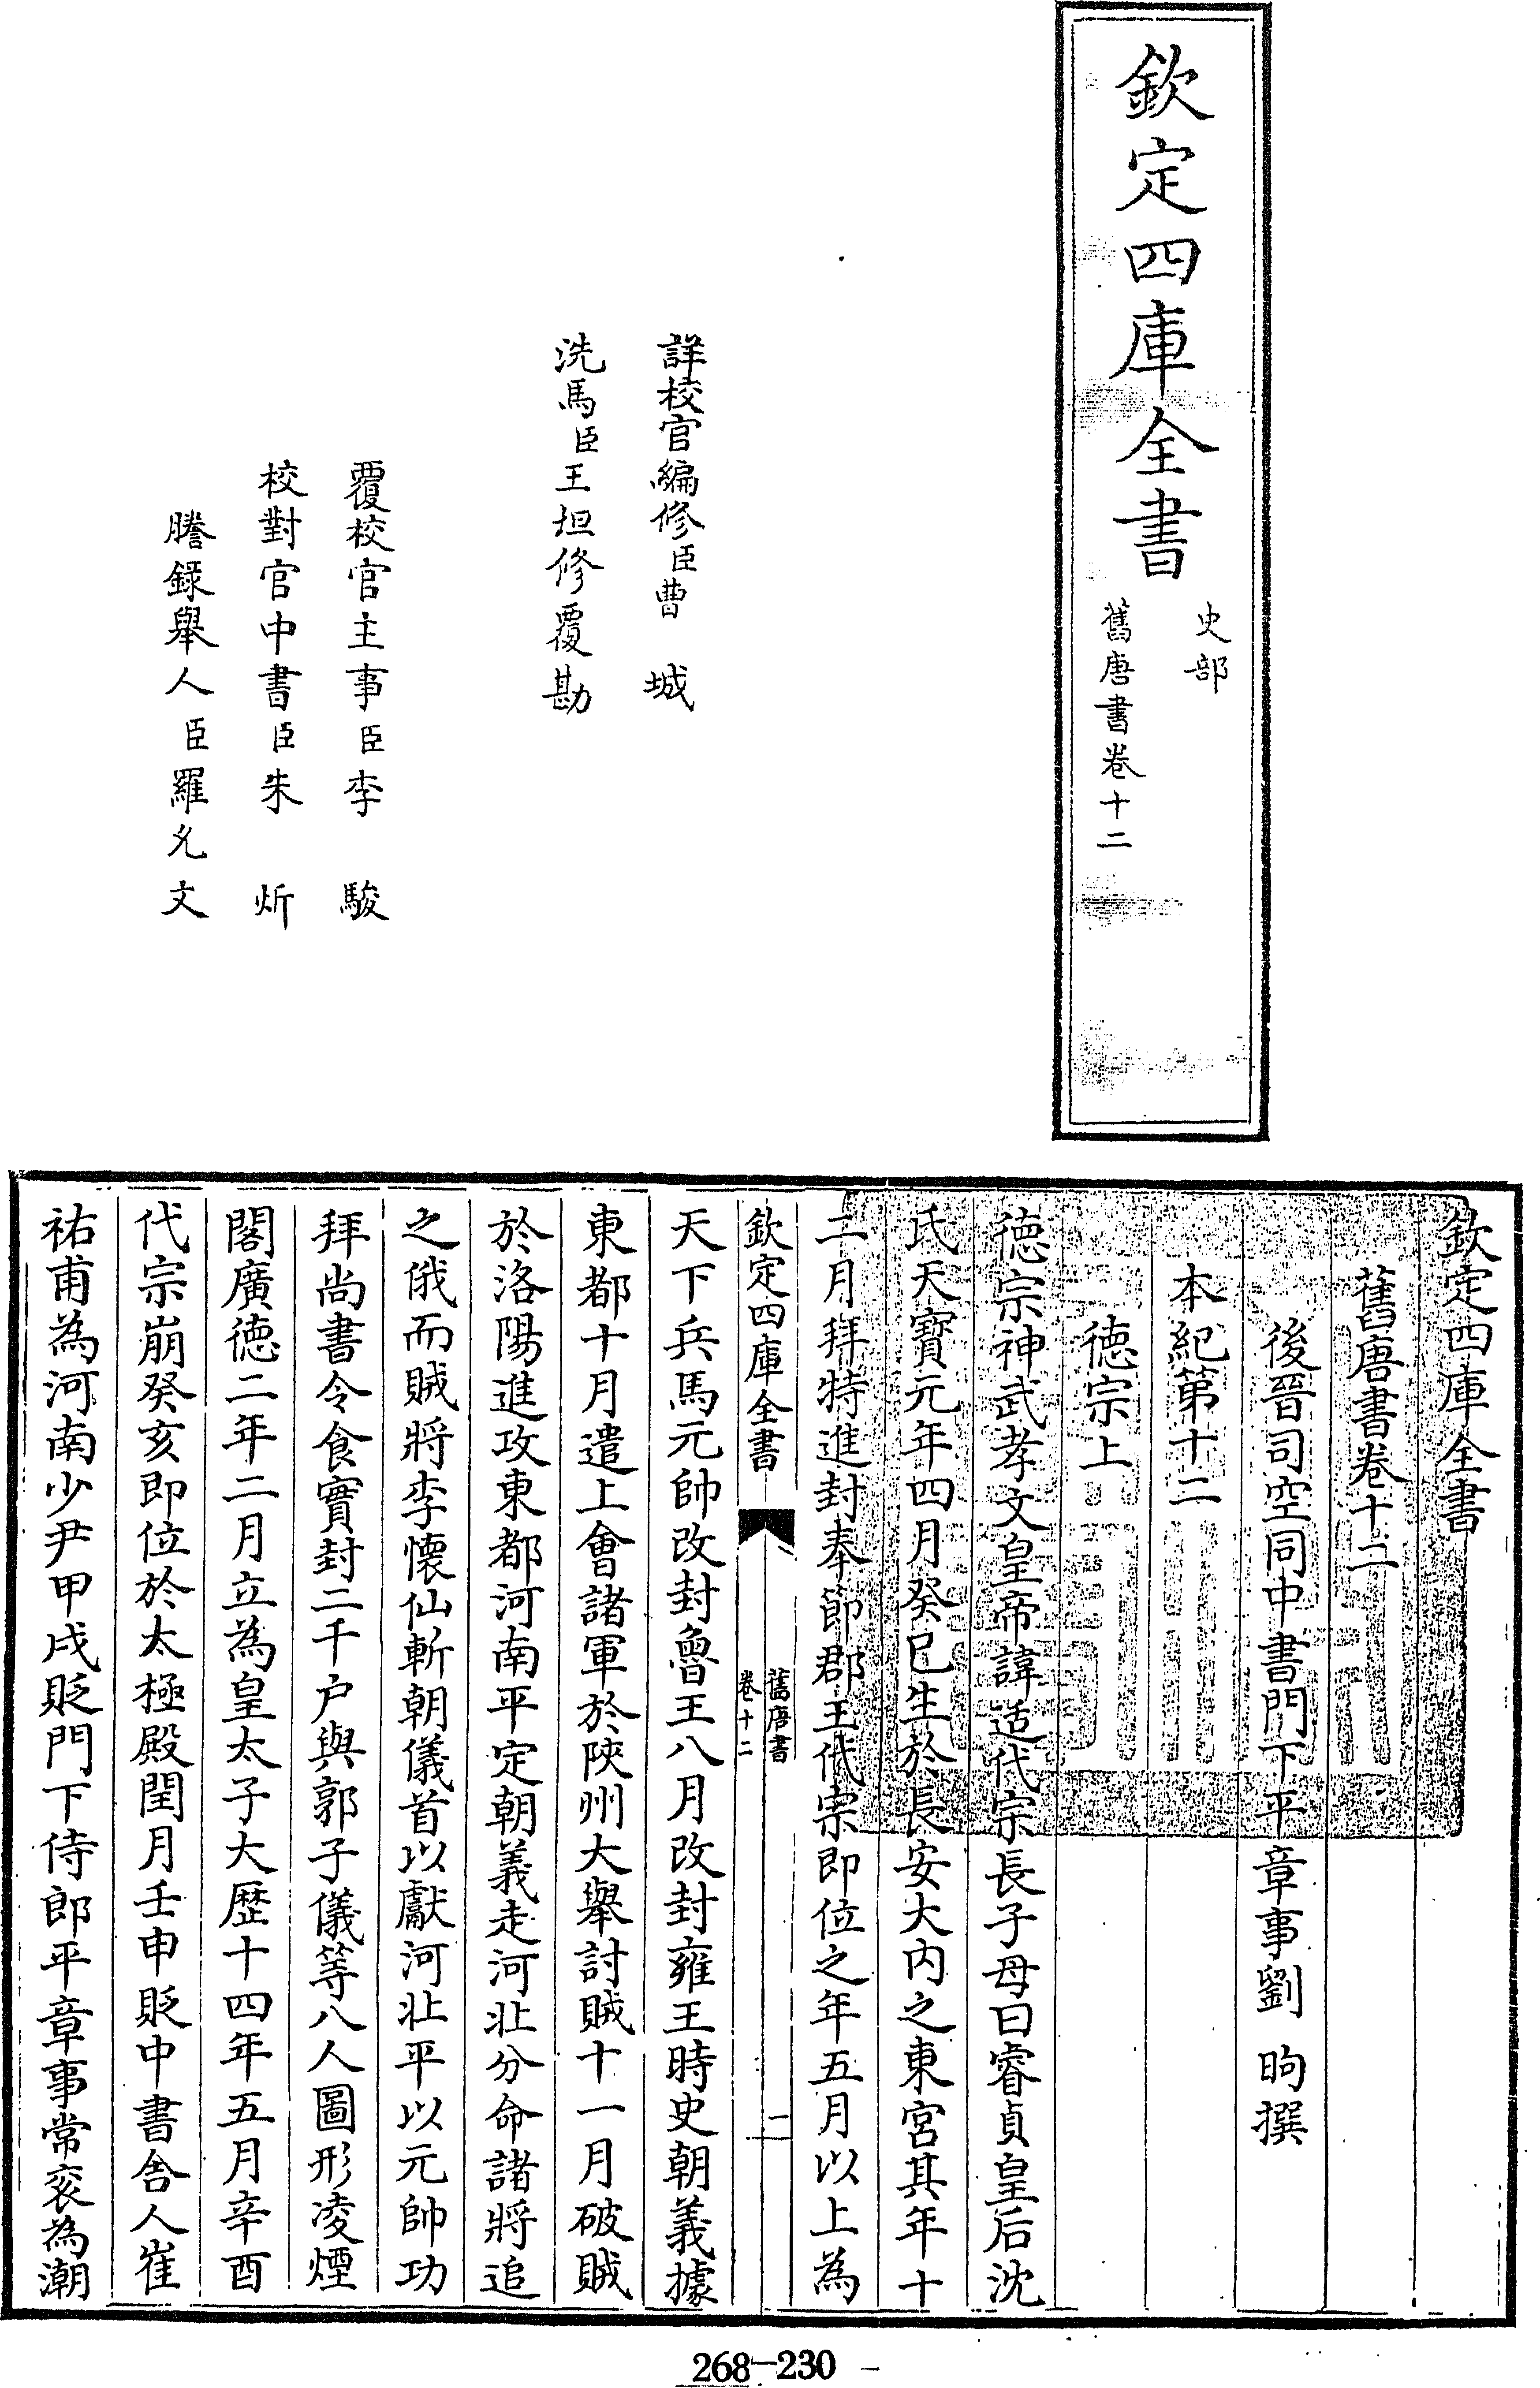 欽定四庫全書
史部
舊唐書卷十二
詳校官編修臣曹城
洗馬臣王坦修覆勘
覆校官主事臣李駿
校對官中書臣朱炘
謄錄舉人臣羅允文
欽定四庫全書
舊唐書卷十二
後晉司空同中書門下平章事劉昫撰
本紀第十二
德宗上
德宗神武孝文皇帝諱适代宗長子母曰睿貞皇后沈
氏天寳元年四月癸巳生於長安大內之東宮其年十
二月拜特進封奉節郡王代宗即位之年五月以上為
欽定四庫全書
舊唐書
卷十二
一
天下兵馬元帥改封魯王八月改封雍王時史朝義據
東都十月遣上會諸軍於陜州大舉討賊十一月破賊
於洛陽進攻東都河南平定朝義走河北分命諸將追
之俄而賊將李懷仙斬朝儀首以獻河北平以元帥功
拜尚書令食實封二千户與郭子儀等八人圖形凌煙
閣廣德二年二月立為皇太子大歴十四年五月辛酉
代宗崩癸亥即位於太極殿閏月壬申貶中書舍人崔
祐甫為河南少尹甲戌貶門下侍郎平章事常衮為潮
268-230